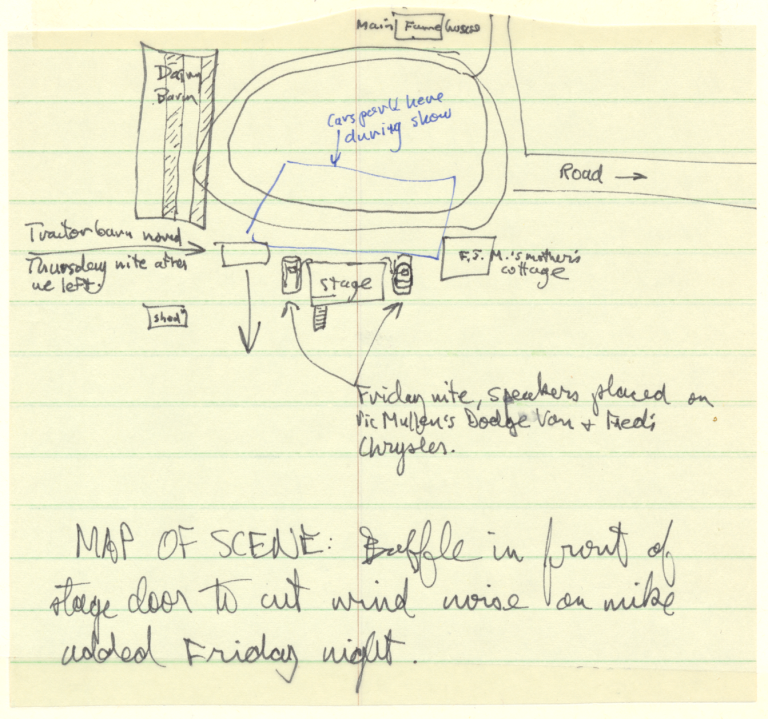 Main Fame House
Dairy
Barn
Cars park here
during show
Road →
Tractor barn moved
Thursday nite after
we left.
F.S. M.'s mother's
cottage
stage
shed
Friday nite, speakers placed on
Vic Mullen's Dodge Van + Fred's
Chrysler.
MAP OF SCENE: Baffle in front of
stage door to cut wind noise on mike
added Friday night.